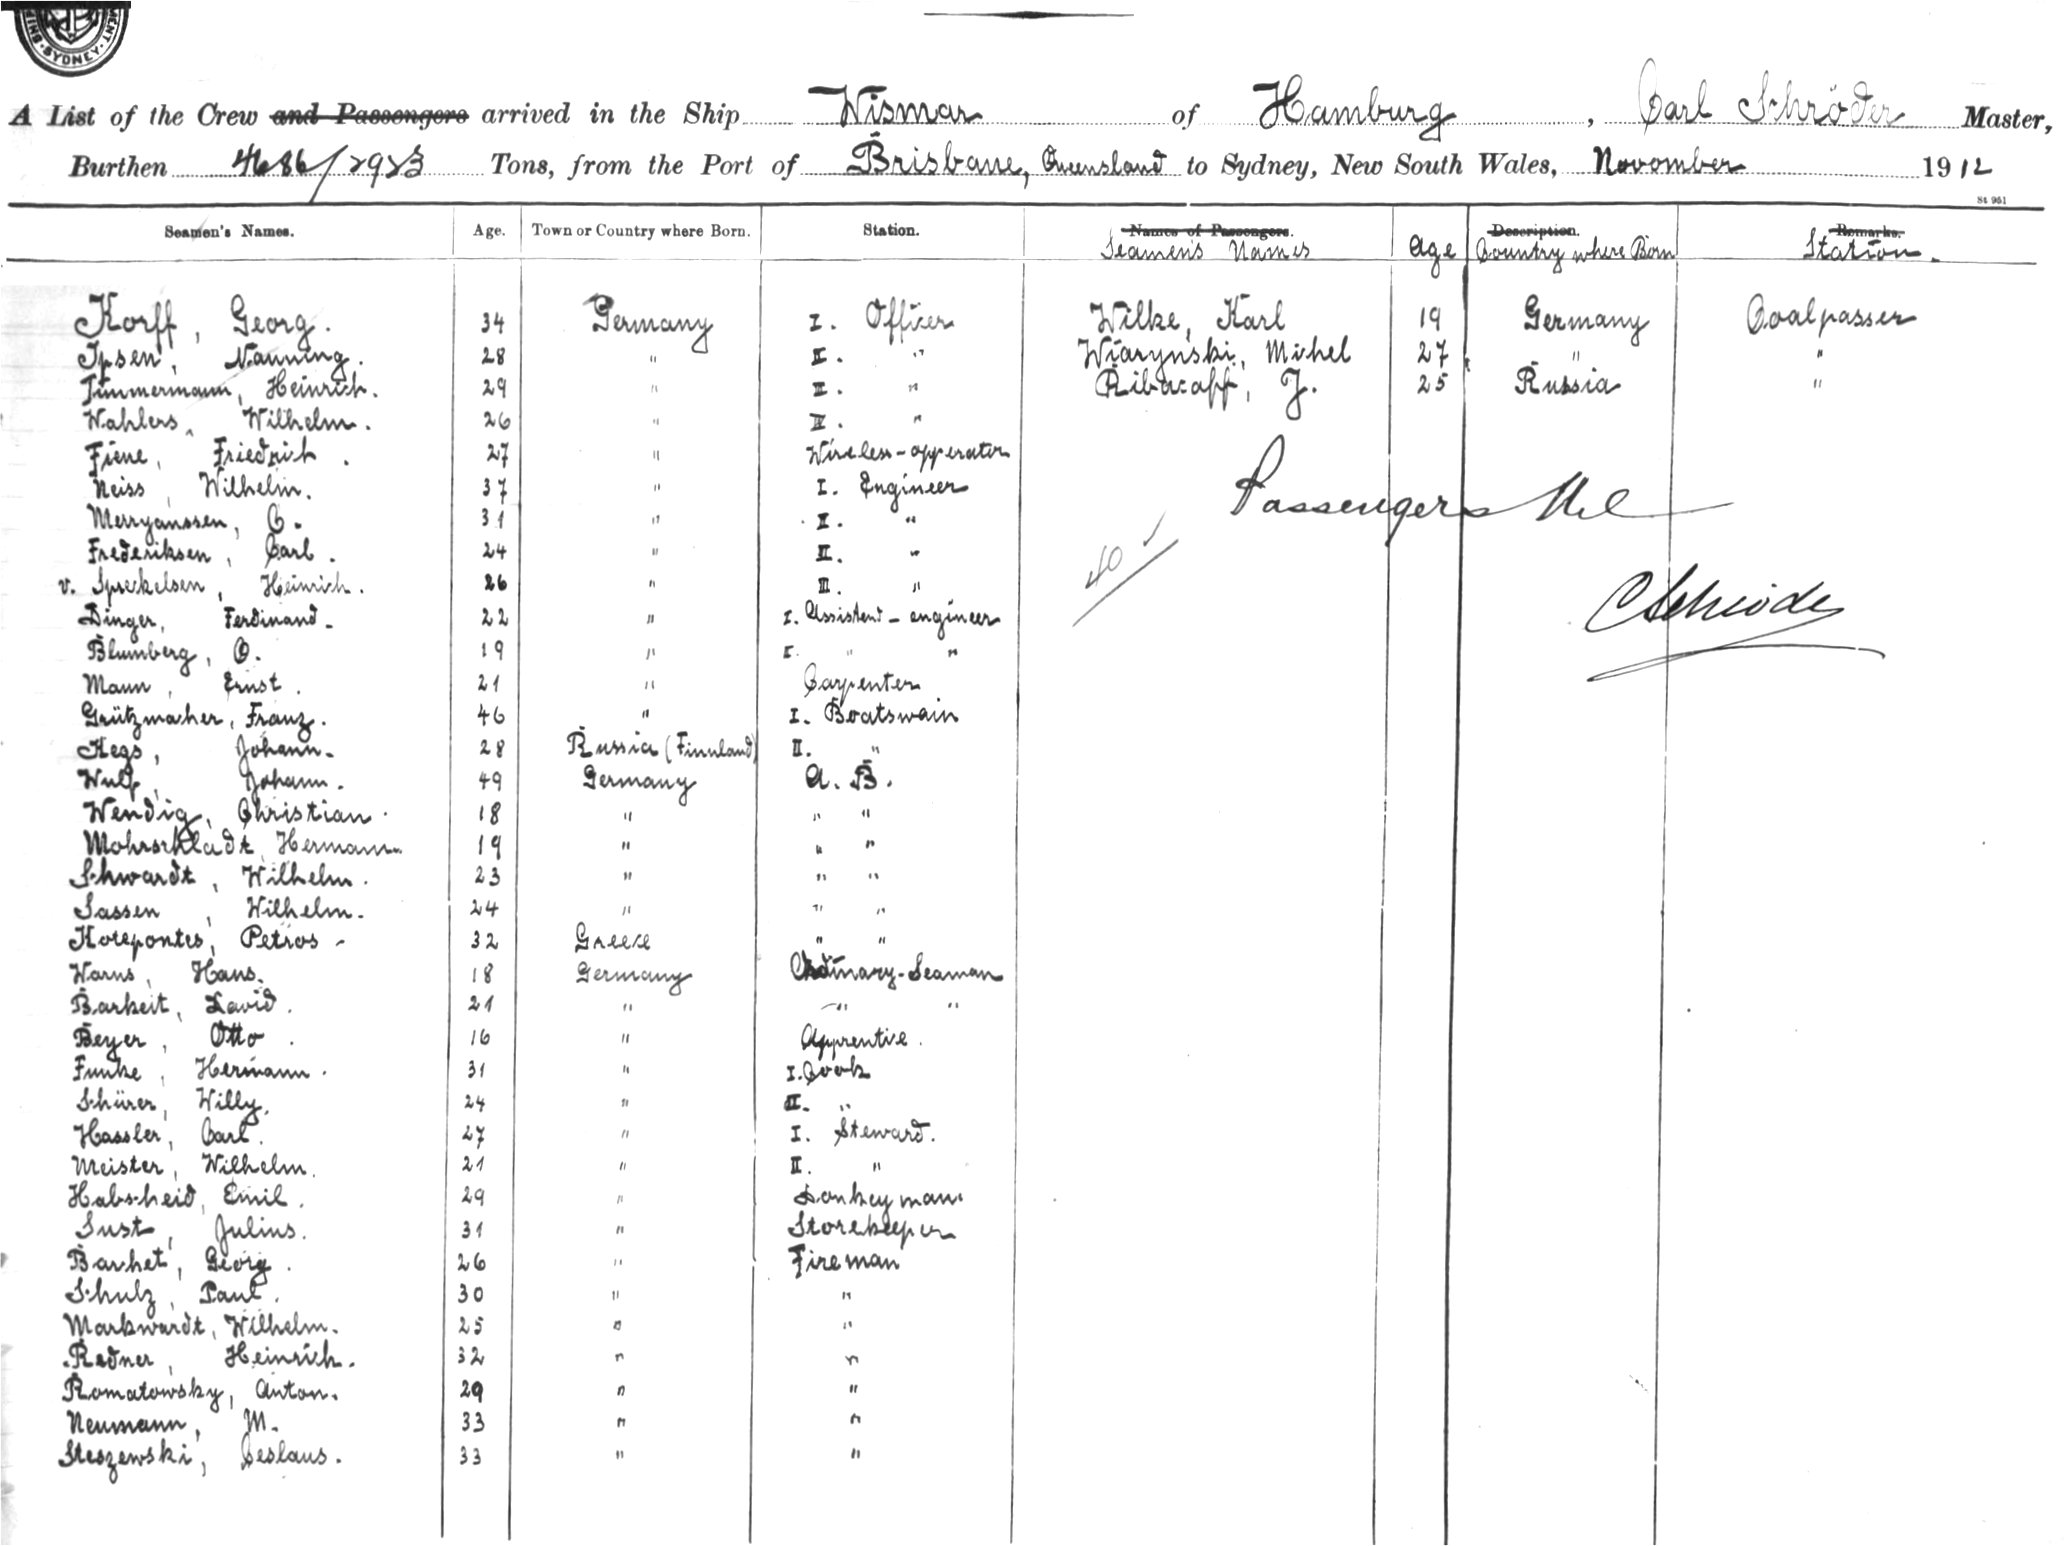 SYDNEY
A List of the Crew and Passengers arrived in the Ship Wismar of Hamburg, Carl Schröder Master,
Burthen 4686/2923 Tons, from the Port of Brisbane, Queensland to Sydney, New South Wales, November 1912
St 951
Seamen's Names. Age. Town or Country where Born. Station. Names of Passengers. Description. Remarks.
Seamen's Names Age Country where Born Station.
Korff, Georg. 34 Germany I. Officer Wilke, Karl 19 Germany Coalpasser
Ipsen, Nanning. 28 " II. " Wiarynski, Michel 27 " "
Timmermann, Heinrich. 29 " II. " Ribacaff, J. 25 Russia "
Wahlers, Wilhelm. 26 " IV. "
Fiene, Friedrich. 27 " Wireless-opperator
Neiss, Wilhelm. 37 " I. Engineer
Passengers Nil
Merryanssen, C. 31 " II. "
Frederiksen, Carl. 24 " II. "
40
v. Spreckelsen, Heinrich. 26 " III. "
C Schröder
Dinger, Ferdinand. 22 " I. Assistend-engineer
Blumberg, O. 19 " I. " "
Mann, Ernst. 21 " Carpenter
Grützmacher, Franz. 46 " I. Boatswain
Kegs, Johann. 28 Russia (Finnland) II. "
Wulf, Johann. 49 Germany A. B.
Wendig, Christian. 18 " " "
Mohrschladt, Hermann. 19 " " "
Schwardt, Wilhelm. 23 " " "
Sassen, Wilhelm. 24 " " "
Kotepontes, Petros 32 Greece " "
Warns, Hans. 18 Germany Ordinary-Seaman
Barkeit, David. 21 " " "
Beyer, Otto. 16 " Apprentice.
Funke, Hermann. 31 " I. Cook
Schürer, Willy. 24 " II. "
Hassler, Carl. 27 " I. Steward.
Meister, Wilhelm. 21 " II. "
Habscheid, Emil. 29 " Donkeyman
Sust, Julius. 31 " Storekeeper
Barhet, Georg. 26 " Fireman
Schulz, Paul. 30 " "
Markwardt, Wilhelm. 25 " "
Redner, Heinrich. 32 " "
Romatowsky, Anton. 29 " "
Neumann, M. 33 " "
Steszewski, Ceslaus. 33 " "